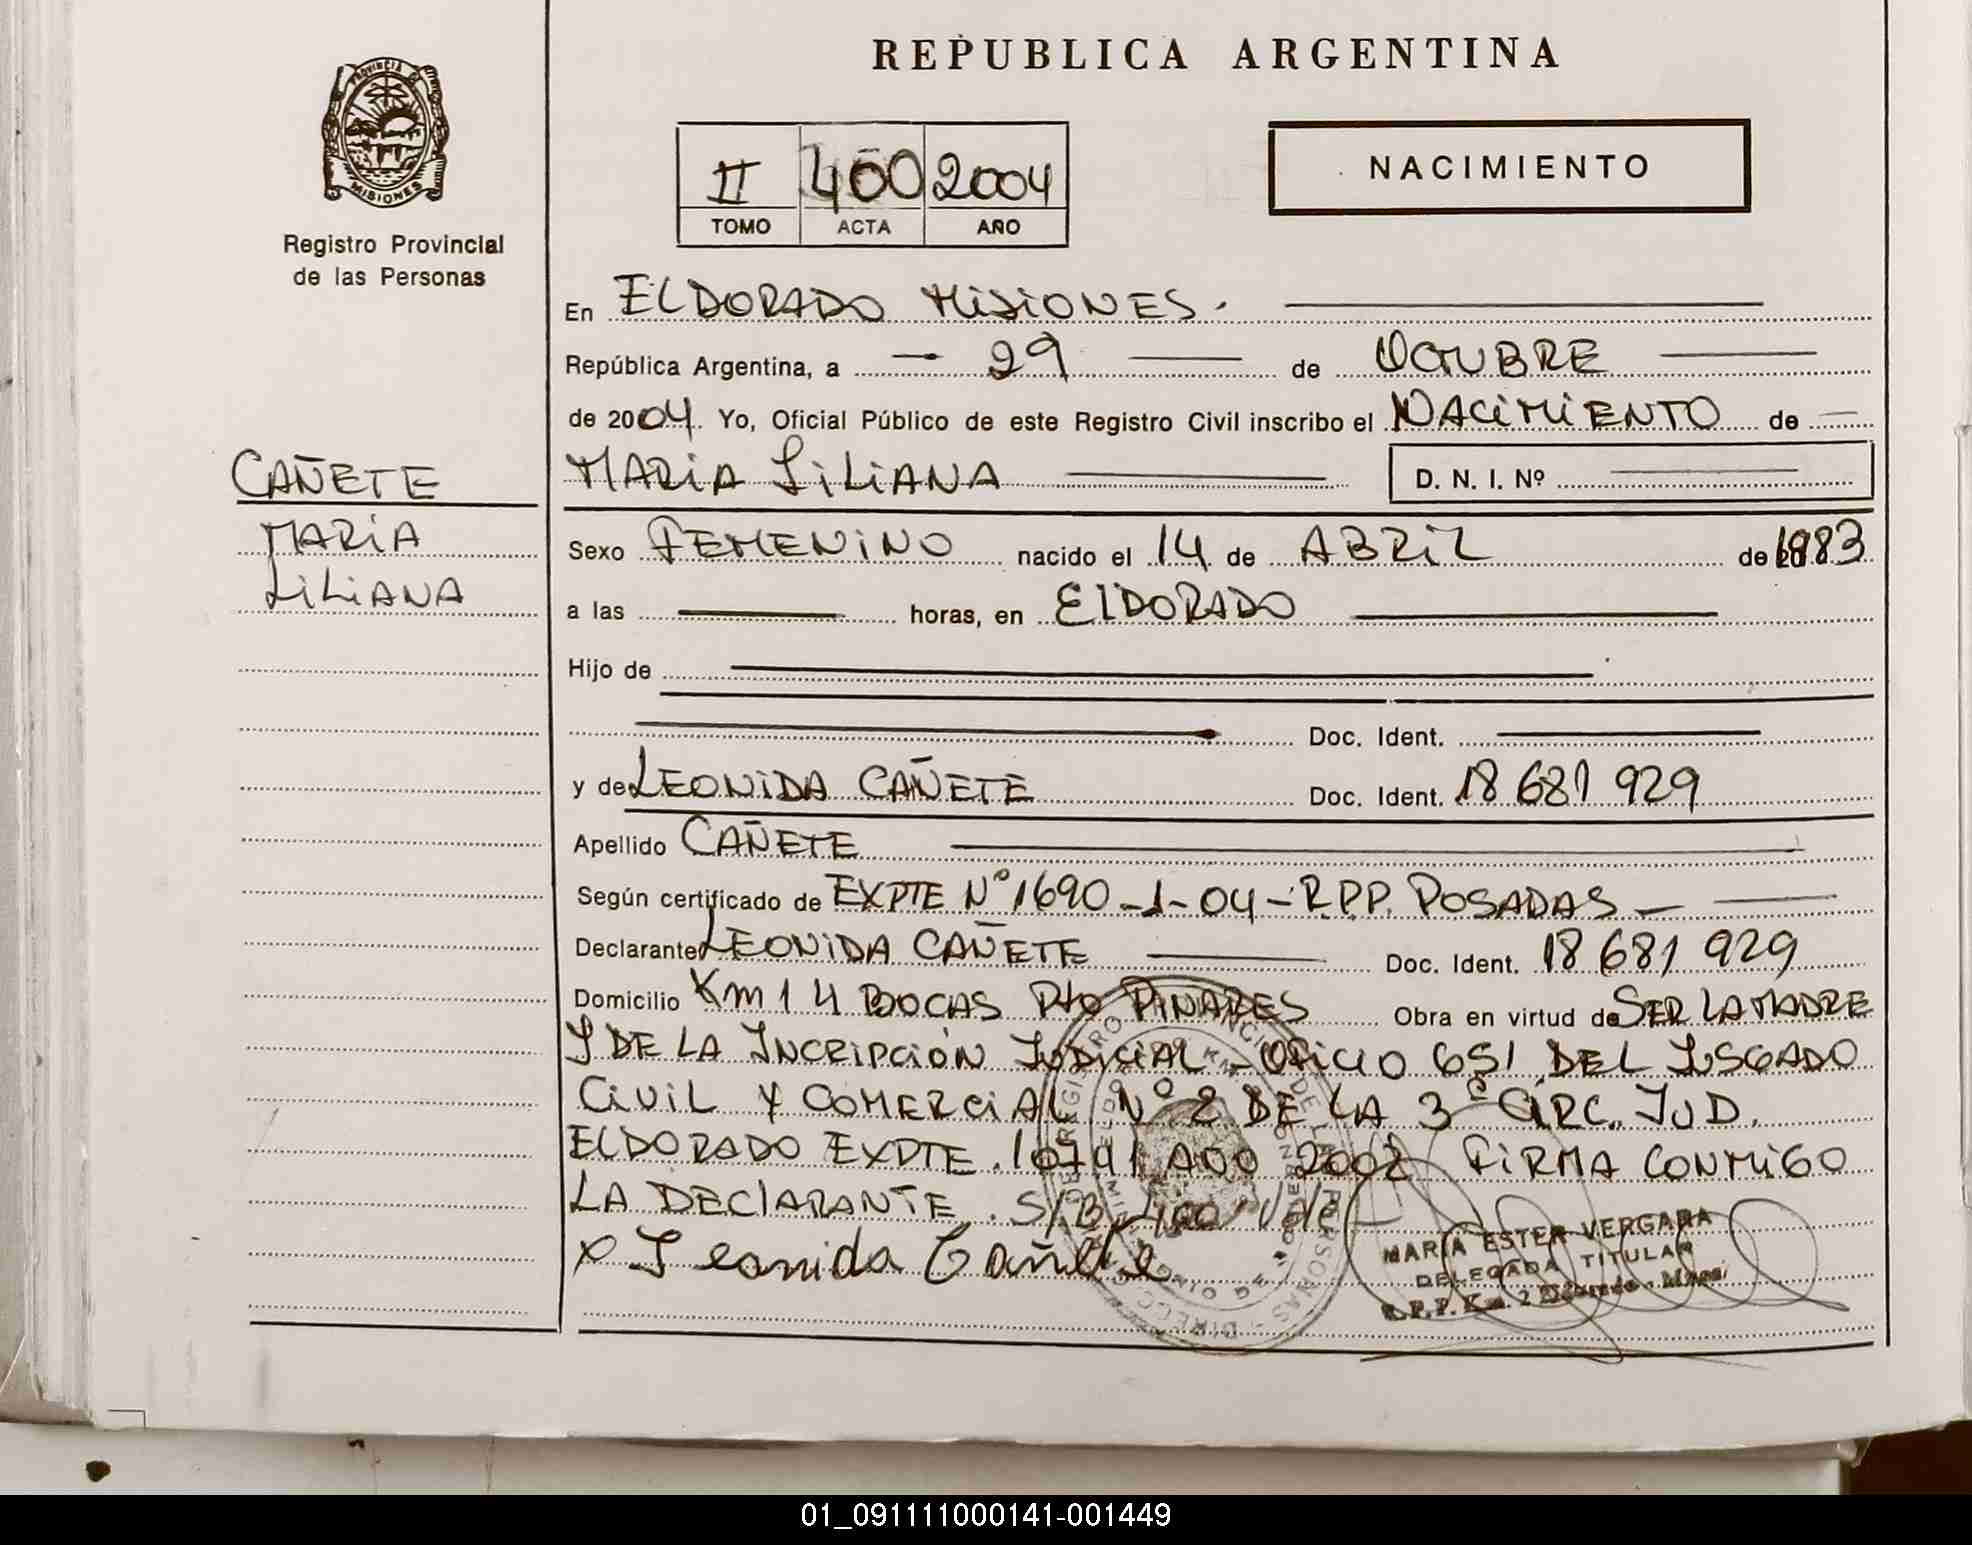 REPUBLICA ARGENTINA
PROVINCIA
MISIONES
Registro Provincial
de las Personas
II 400 2004
TOMO ACTA AÑO
NACIMIENTO
En ELDORADO MISIONES.
República Argentina, a 29 de OCTUBRE
de 2004. Yo, Oficial Público de este Registro Civil inscribo el NACIMIENTO de
CAÑETE
MARIA
LILIANA
MARIA LILIANA D. N. I. Nº
Sexo FEMENINO nacido el 14 de ABRIL de 1983
a las horas, en ELDORADO
Hijo de
Doc. Ident.
y de LEONIDA CAÑETE Doc. Ident. 18 681 929
Apellido CAÑETE
Según certificado de EXPTE Nº 1690-1-04-R.P.P. POSADAS
Declarante LEONIDA CAÑETE Doc. Ident. 18 681 929
Domicilio Km 14 BOCAS Pto PINARES Obra en virtud de SER LA MADRE
Y DE LA INCRIPCIÓN JUDICIAL - OFICIO 651 DEL JUSGADO
CIVIL Y COMERCIAL Nº 2 DE LA 3ª CIRC. JUD.
ELDORADO EXPTE. 10741 AÑO 2002 FIRMA CONMIGO
LA DECLARANTE. S/B 400 Vale
x Leonida Cañete
MARIA ESTER VERGARA
DELEGADA TITULAR
R.P.P. Km. 2 Eldorado - Mnes.
01_091111000141-001449